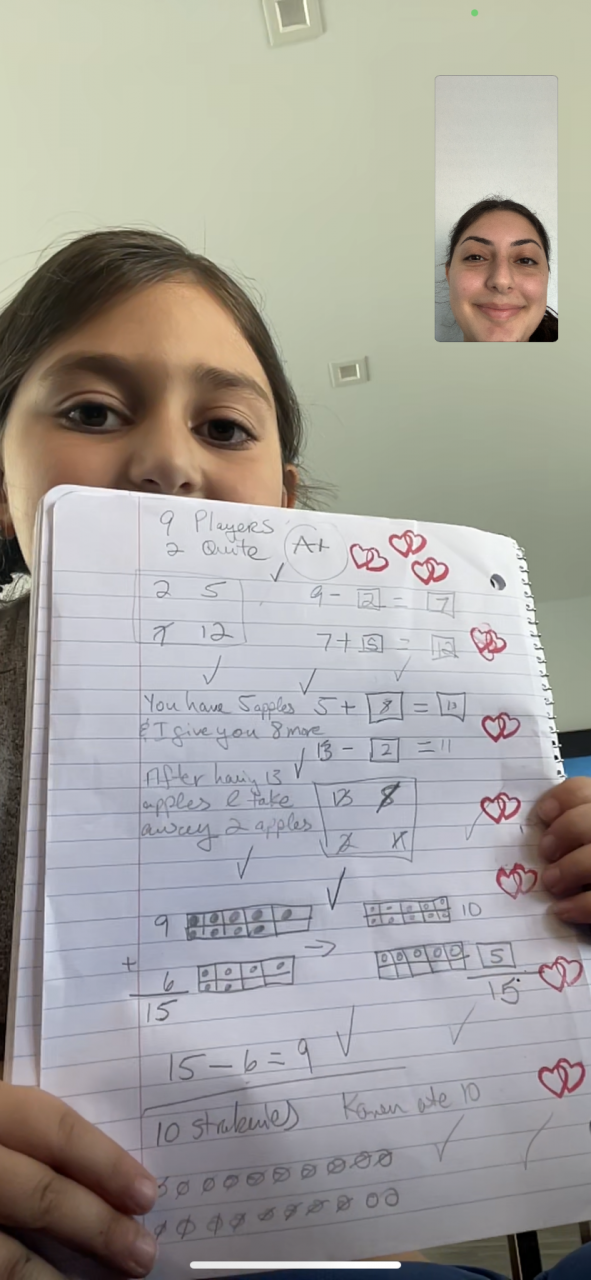 9 Players
2 Quite
A+
2 5
7 12
9 - 2 = 7
7 + 5 = 12
You have 5 apples
& I give you 8 more
5 + 8 = 13
13 - 2 = 11
After having 13
apples & take
away 2 apples
13 8
2 X
9
10
+ 6
15
5
15
15 - 6 = 9
10 strakuries Karen ate 10